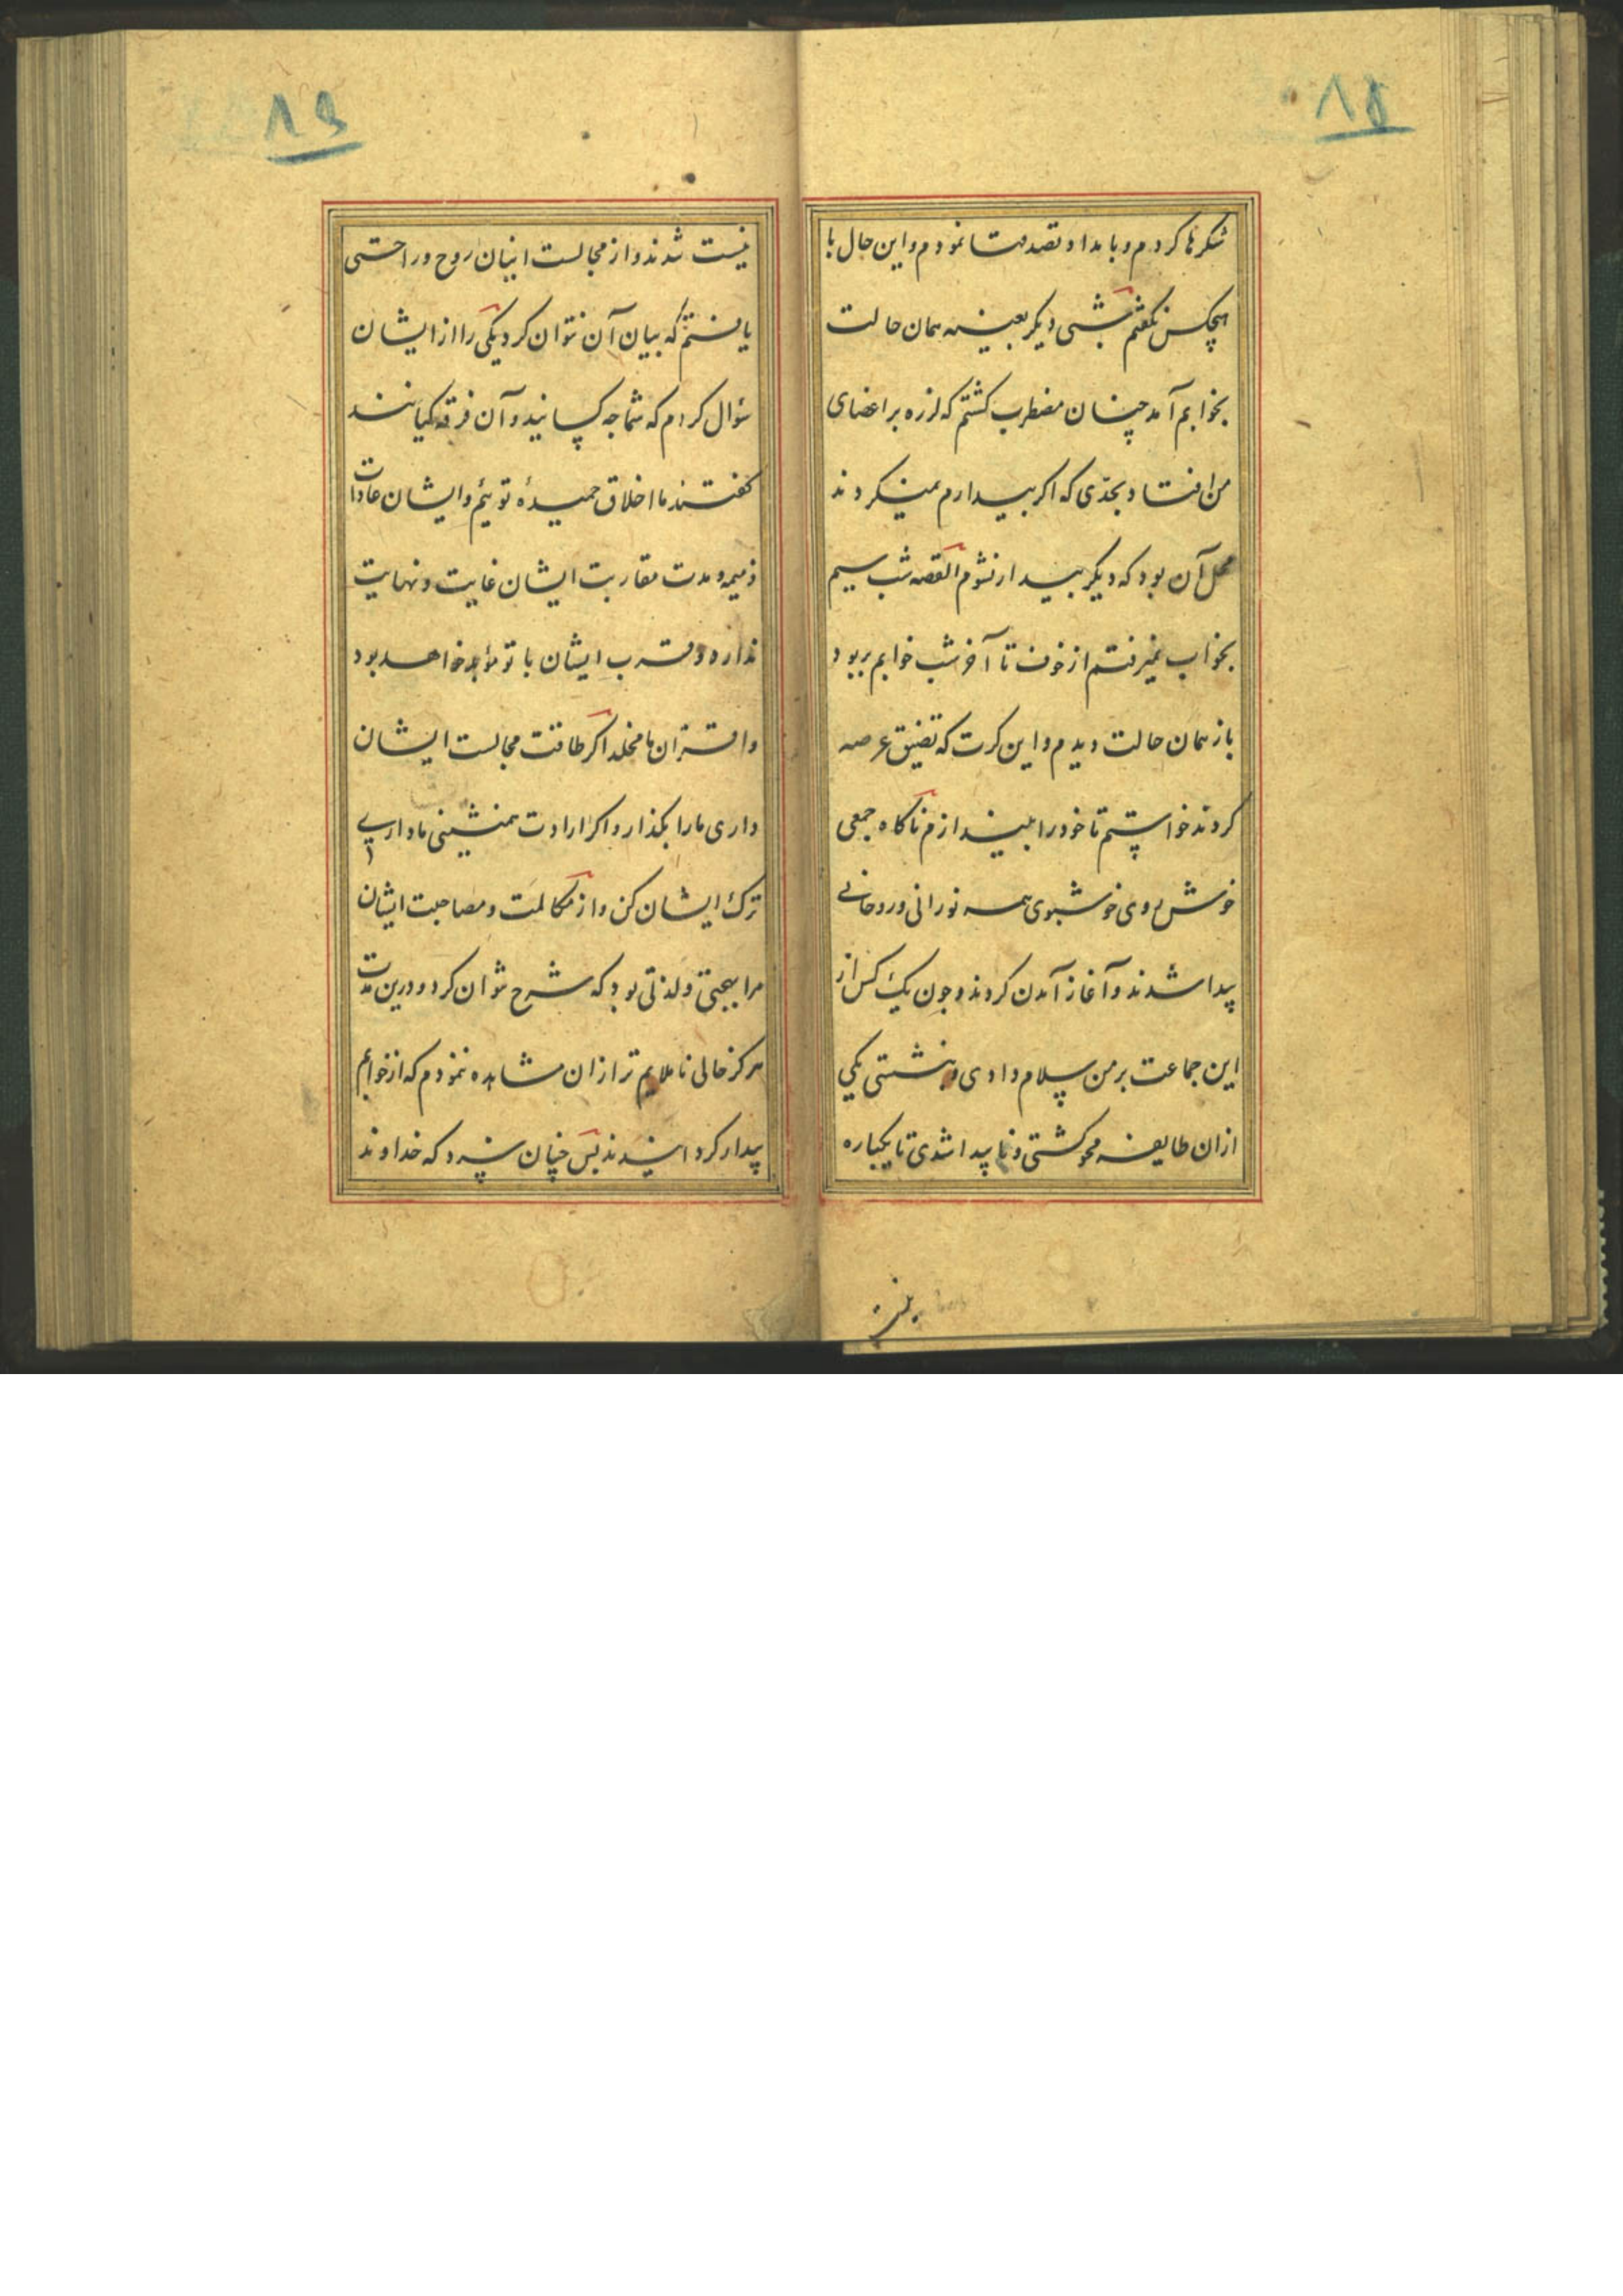 ۱۸
شکرها کردم و بامداد تصدقها نمودم و این حال با
هیچکس نکفتم شبی دیکر بعینه همان حالت
بخوابم آمد چنان مضطرب کشتم که لرزه بر اعضای
من افتاد بحدّی که اکر بیدارم نمیکردند
محل آن بود که دیکر بیدار نشوم القصه شب سیم
بخواب نمیرفتم از خوف تا آخر شب خوابم ربود
باز همان حالت دیدم و این کرت که تضیق عرصه
کردند خواستم تا خود را بیندازم ناکاه جمعی
خوش روی خوشبوی همه نورانی و روحانی
پیدا شدند و آغاز آمدن کردند و چون یک کس از
این جماعت بر من سلام دادی و بنشستی یکی
ازان طایفه محو کشتی و ناپیدا شدی تا یکباره
۱۹
نیست شدند و از مجالست اینان روح و راحتی
یافتم که بیان آن نتوان کرد یکی را از ایشان
سؤال کردم که شما چه کسانید و آن فرقه کیانند
کفتند ما اخلاق حمیدهٔ توئیم و ایشان عادات
ذمیمه و مدت مقاربت ایشان غایت و نهایت
ندارد و قرب ایشان با تو مؤبد خواهد بود
و اقتران ما مخلد اکر طاقت مجالست ایشان
داری ما را بکذار و اکر ارادت همنشینی ما داری
ترک ایشان کن و از مکالمت و مصاحبت ایشان
مرا بهجتی و لذتی بود که شرح نتوان کرد و درین مدت
هرکز حالی ناملایم تر ازان مشاهده ننمودم که از خوابم
بیدار کردانیدند پس چنان سزد که خداوند